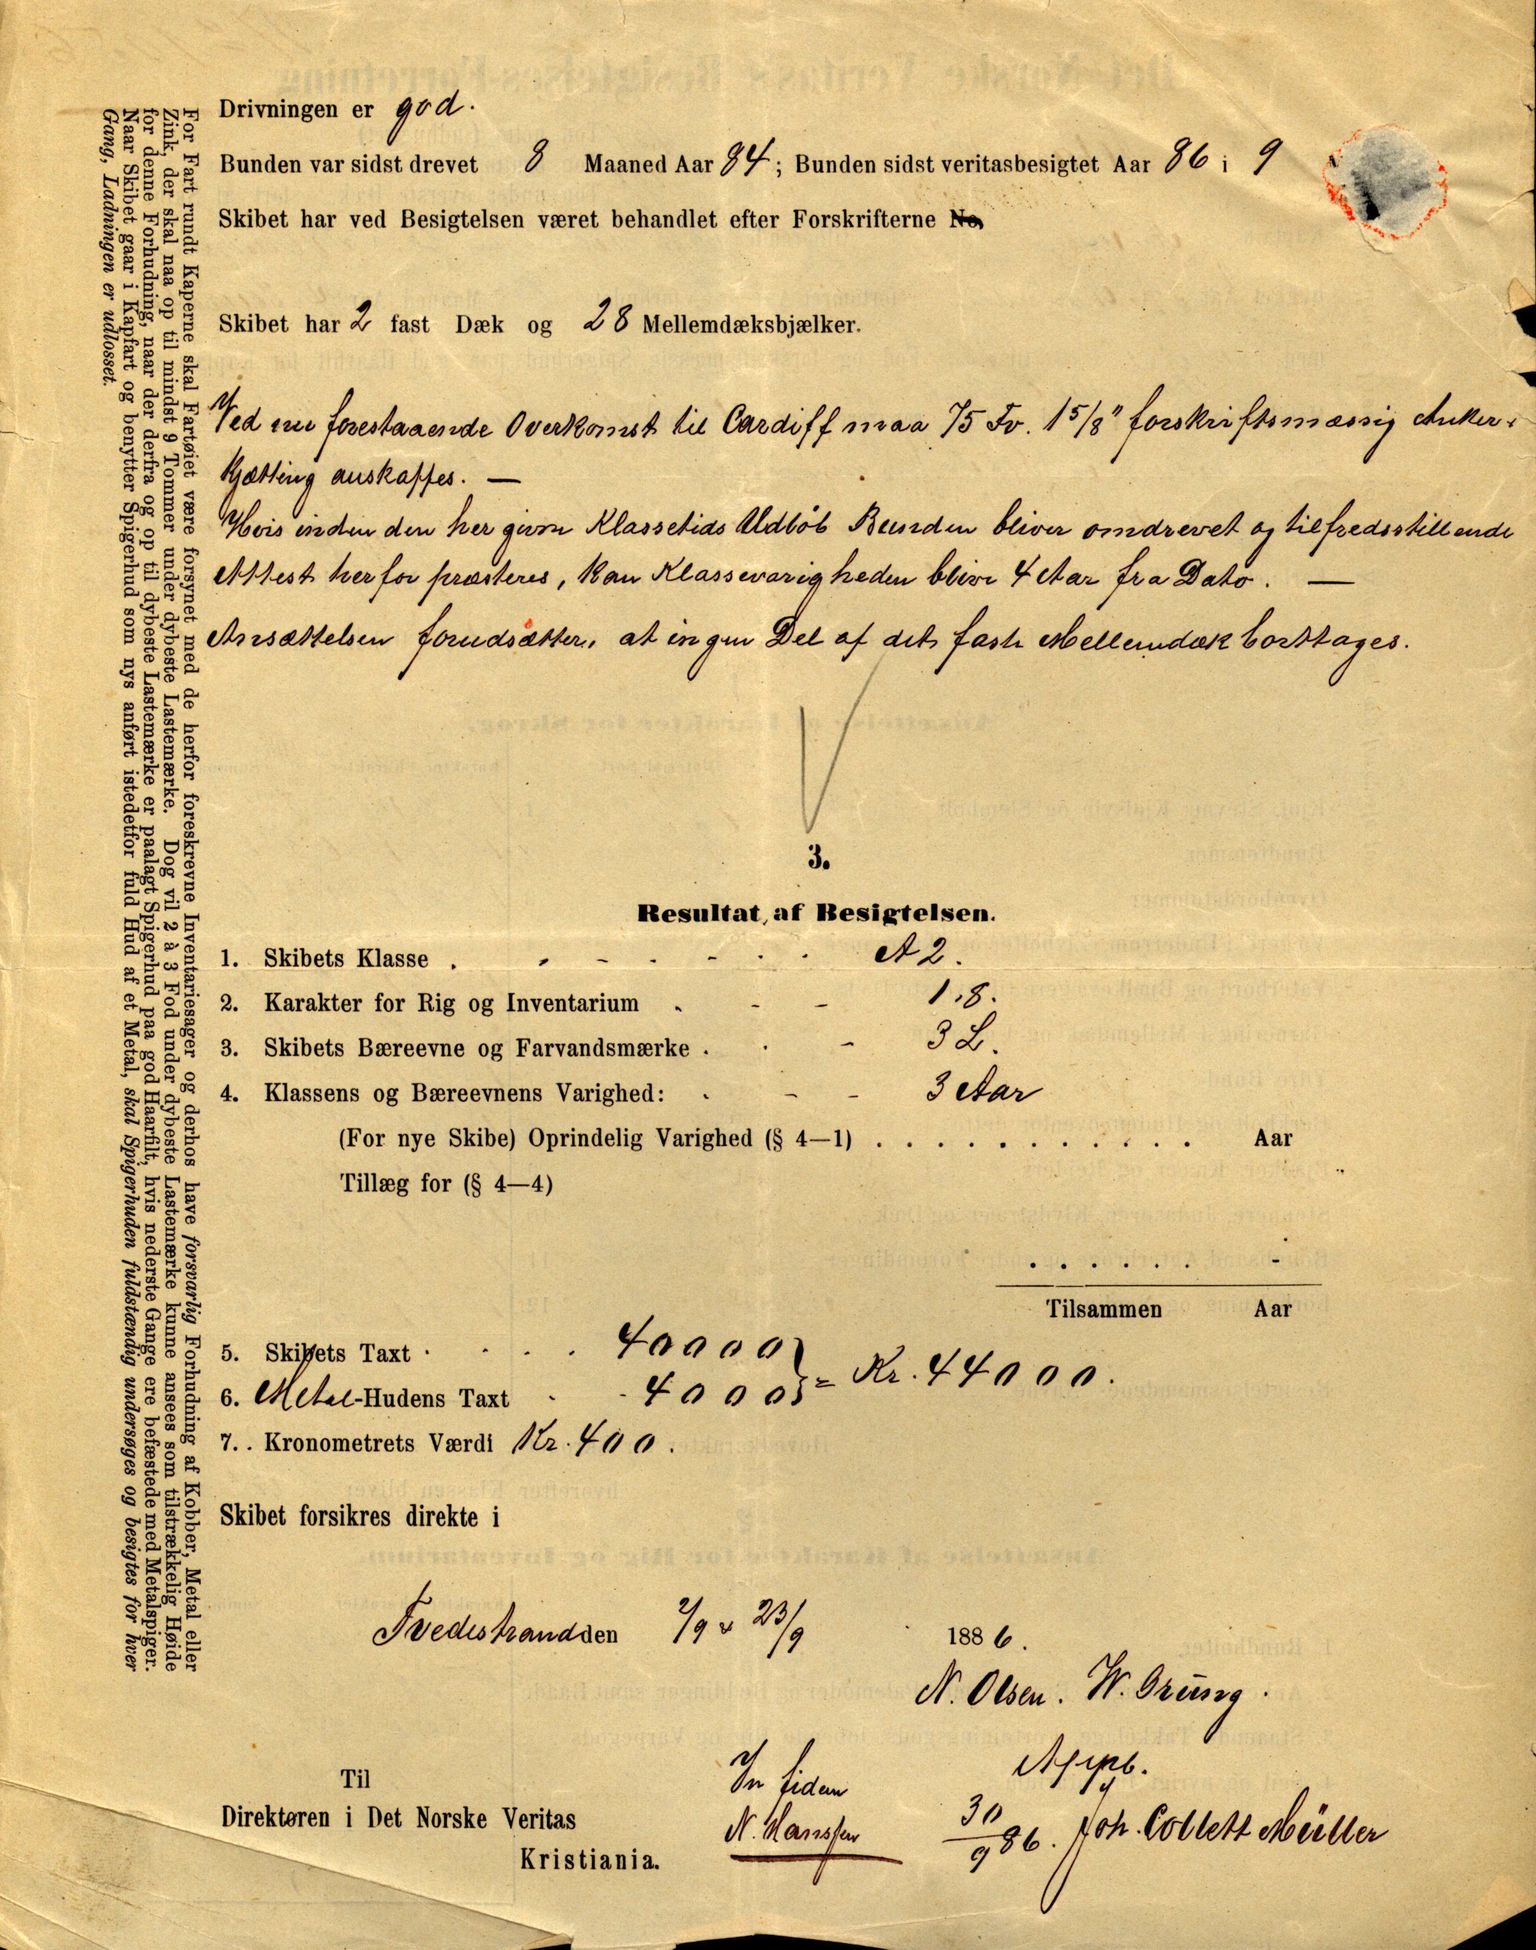 Drivningen er god.
Bunden var sidst drevet 8 Maaned Aar 84; Bunden sidst veritasbesigtet Aar 86 i 9
Skibet har ved Besigtelsen været behandlet efter Forskrifterne No,
Skibet har 2 fast Dæk og 28 Mellemdæksbjælker.
Ved nu forestaaende Overkomst til Cardiff maa 75 Fv. 1 5/8" forskriftsmæssig Anker-
Kjætting anskaffes. —
Hvis inden den her givne Klassetids Udløb Bunden bliver omdrevet og tilfredsstillende
Attest herfor præsteres, kan Klassevarigheden blive 4 Aar fra Dato. —
Ansættelsen forudsætter, at ingen Del af det faste Mellemdæk borttages.
3.
Resultat af Besigtelsen.
1. Skibets Klasse . . . . . . . A 2.
2. Karakter for Rig og Inventarium . . . 1.8.
3. Skibets Bæreevne og Farvandsmærke . . . 3 L.
4. Klassens og Bæreevnens Varighed: . . . 3 Aar
(For nye Skibe) Oprindelig Varighed (§ 4—1) . . . . . . . . . . . . Aar
Tillæg for (§ 4—4)
. . . . . .
Tilsammen Aar
5. Skibets Taxt . . . . 40000
6. Metal-Hudens Taxt . . 4000 } = Kr. 44000.
7. Kronometrets Værdi Kr. 400.
Skibet forsikres direkte i
Tvedestrand den 2/9 & 23/9 1886.
N. Olsen. W. Grung.
Til
Direktøren i Det Norske Veritas
Kristiania.
In fidem
N. Hanssen
Appb.
30/9 86. Joh. Collett Müller
For Fart rundt Kaperne skal Fartøiet være forsynet med de herfor foreskrevne Inventariesager og derhos have forsvarlig Forhudning af Kobber, Metal eller
Zink, der skal naa op til mindst 9 Tommer under dybeste Lastemærke. Dog vil 2 à 3 Fod under dybeste Lastemærke kunne ansees som tilstrækkelig Høide
for denne Forhudning, naar der derfra og op til dybeste Lastemærke er paalagt Spigerhud paa god Haarfilt, hvis nederste Gange ere befæstede med Metalspiger.
Naar Skibet gaar i Kapfart og benytter Spigerhud som nys anført istedetfor fuld Hud af et Metal, skal Spigerhuden fuldstændig undersøges og besigtes for hver
Gang, Ladningen er udlosset.